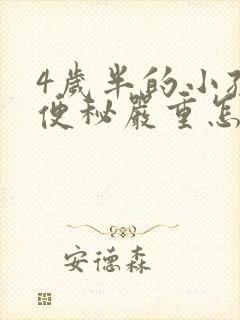 4歲半的小孩
便秘嚴重怎
安德森